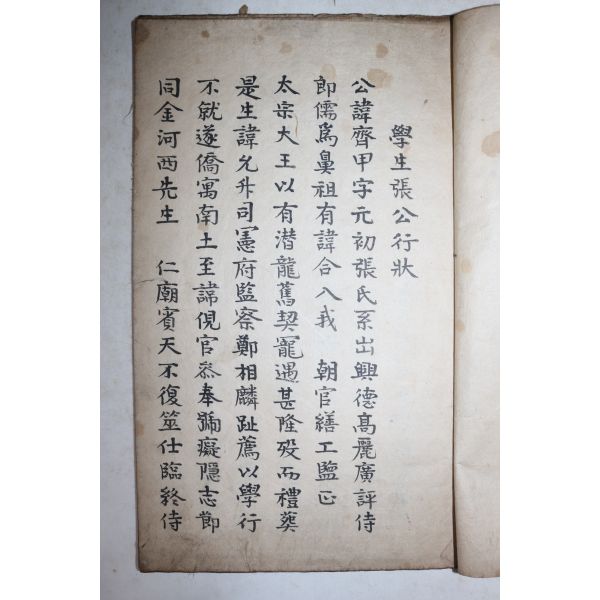 學生張公行狀
公諱齊甲字元初張氏系出興德高麗廣評侍
郎儒爲鼻祖有諱合入我　朝官繕工監正
太宗大王以有潛龍舊契寵遇甚隆歿而禮葬
是生諱允升司憲府監察鄭相麟趾薦以學行
不就遂僑寓南土至諱俔官叅奉號癡隱志節
同金河西先生　仁廟賓天不復筮仕臨終侍